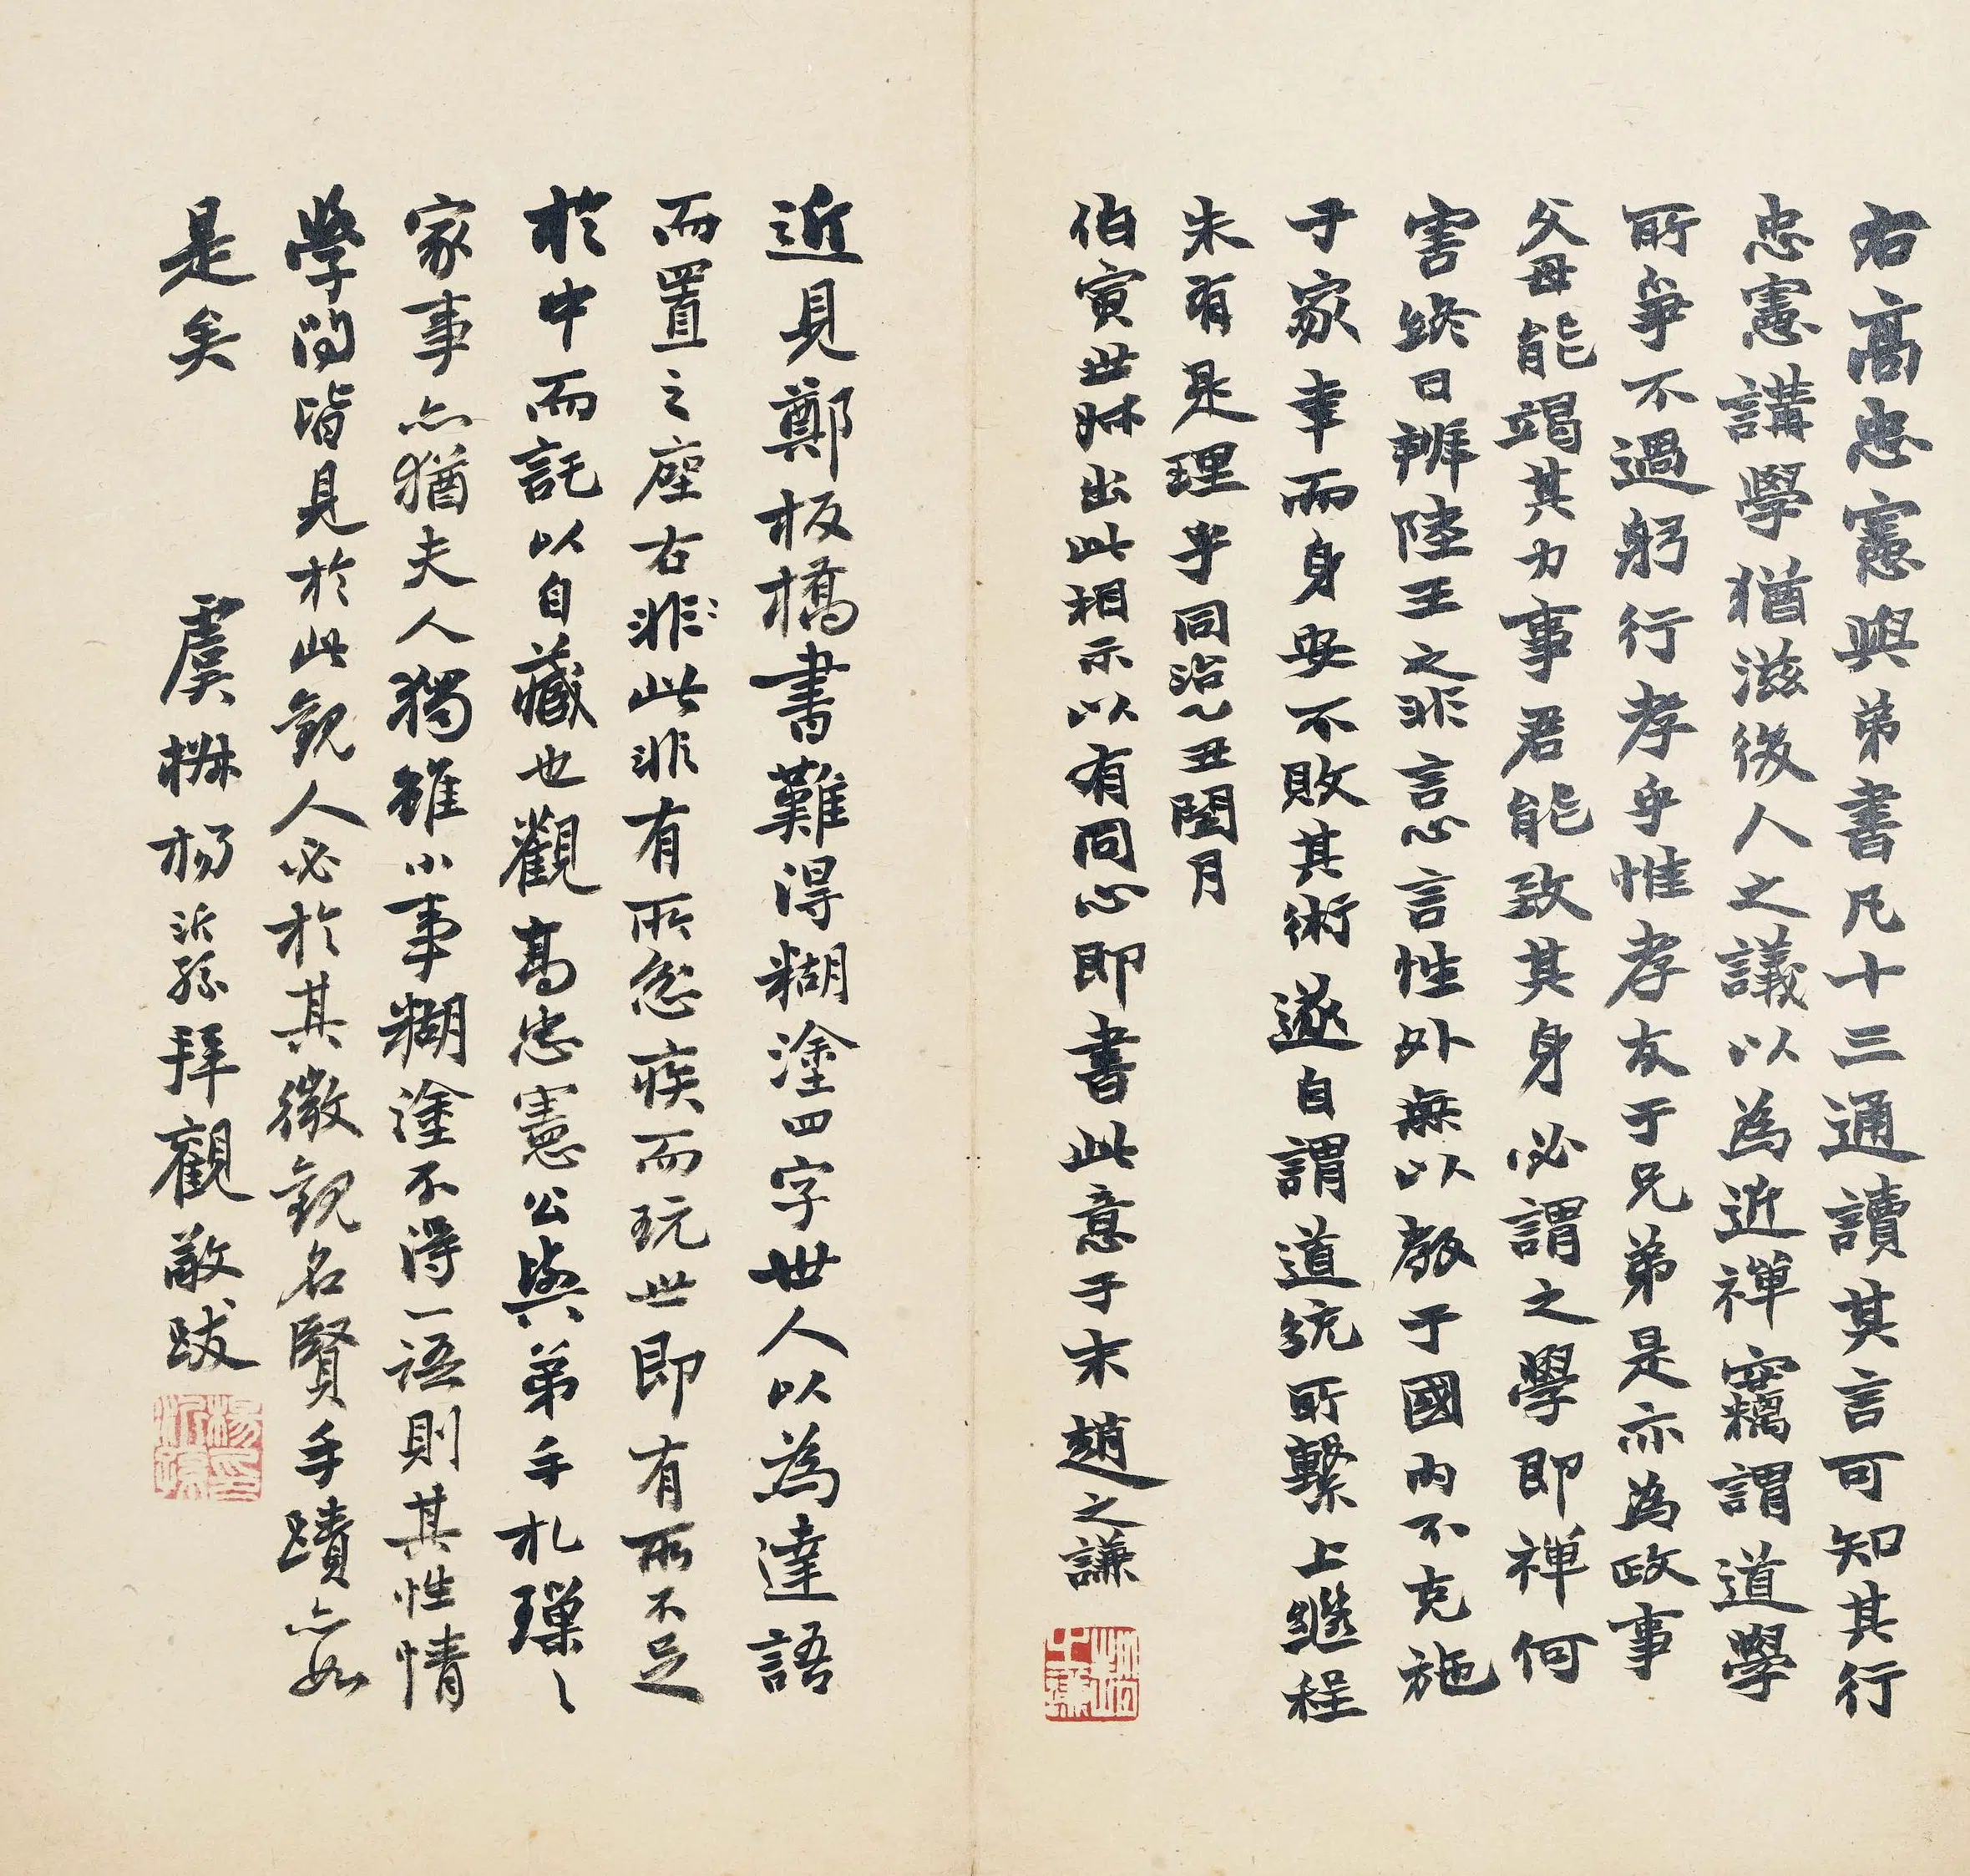 右高忠憲與弟書凡十三通讀其言可知其行
忠憲講學猶滋後人之議以為近禪竊謂道學
所爭不過躬行孝乎惟孝友于兄弟是亦為政事
父母能竭其力事君能致其身必謂之學即禪何
害終日辨陸王之非言心言性外無以教于國內不克施
于家幸而身安不敗其術遂自謂道統所繫上繼程
朱有是理乎同治乙丑閏月
伯寅世叔出此相示以有同心即書此意于末趙之謙
近見鄭板橋書難得糊塗四字世人以為達語
而置之座右非此非有所忿疾而玩世即有所不足
於中而託以自藏也觀高忠憲公與弟手札瑣〻
家事亦猶夫人獨雖小事糊塗不得一語則其性情
學問皆見於此觀人必於其微觀名賢手蹟亦如
是矣
虞楙楊沂孫拜觀敬跋
楊沂孫印
趙之謙